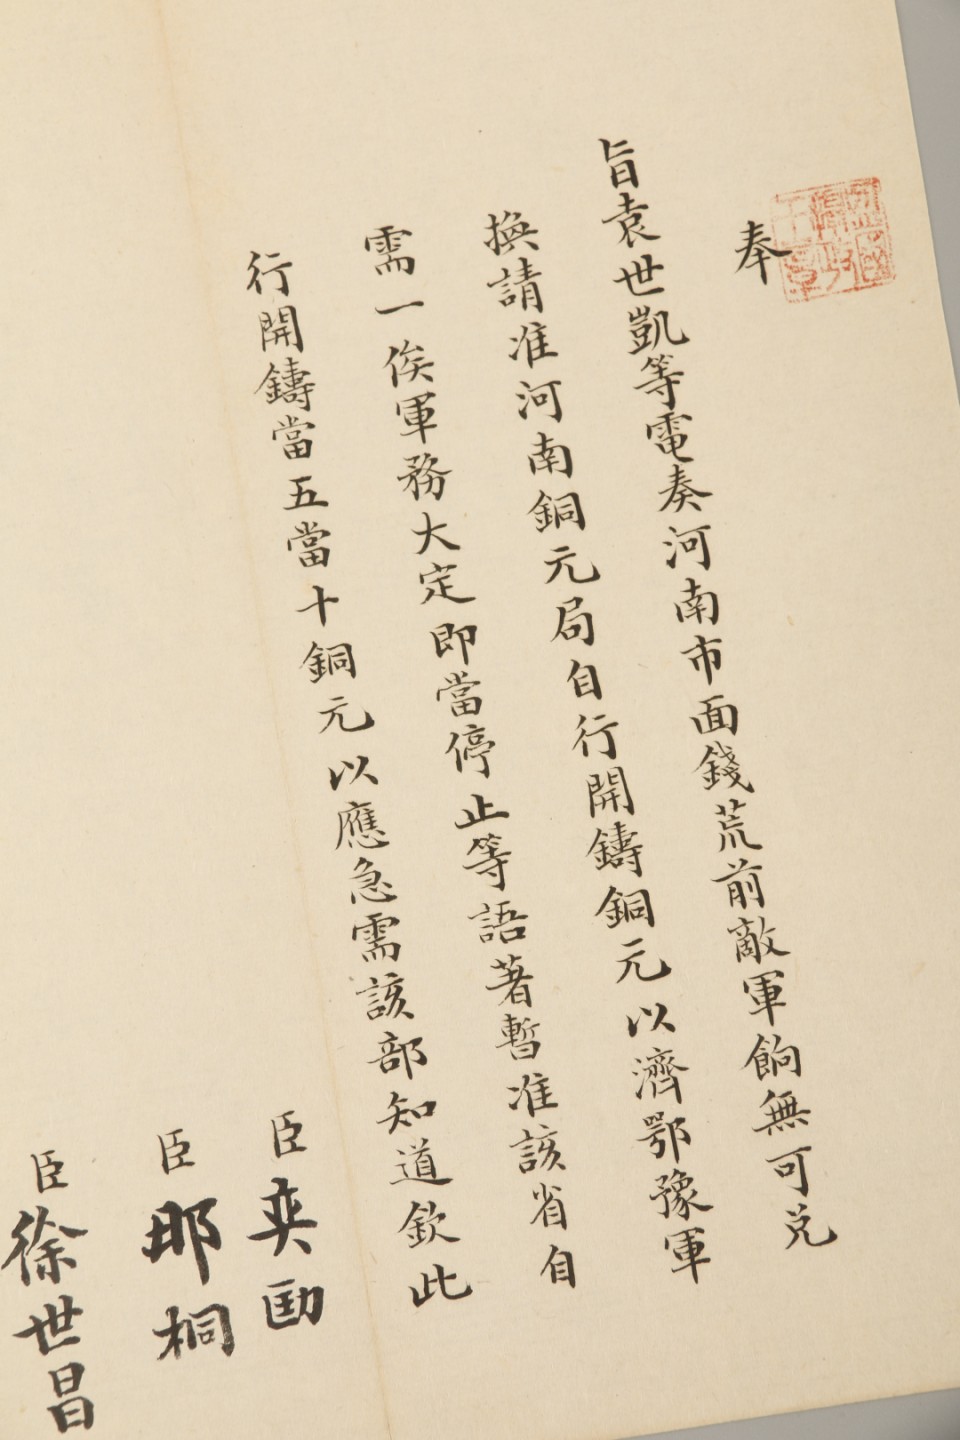 監國
攝政
王章
奉
旨袁世凱等電奏河南市面錢荒前敵軍餉無可兌
換請准河南銅元局自行開鑄銅元以濟鄂豫軍
需一俟軍務大定即當停止等語著暫准該省自
行開鑄當五當十銅元以應急需該部知道欽此
臣奕劻
臣那桐
臣徐世昌